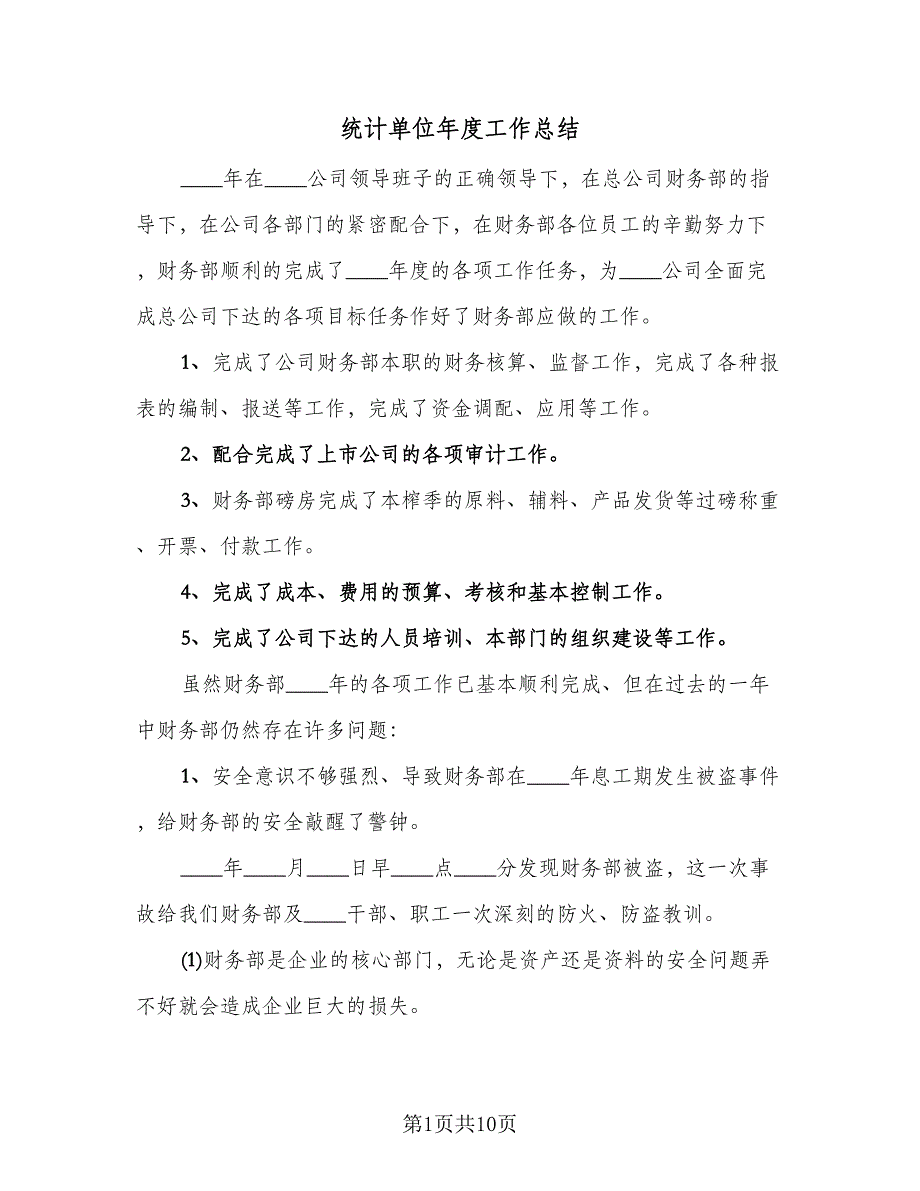 统计单位年度工作总结
____年在____公司领导班子的正确领导下，在总公司财务部的指
导下，在公司各部门的紧密配合下，在财务部各位员工的辛勤努力下
，财务部顺利的完成了____年度的各项工作任务，为____公司全面完
成总公司下达的各项目标任务作好了财务部应做的工作。
1、完成了公司财务部本职的财务核算、监督工作，完成了各种报
表的编制、报送等工作，完成了资金调配、应用等工作。
2、配合完成了上市公司的各项审计工作。
3、财务部磅房完成了本榨季的原料、辅料、产品发货等过磅称重
、开票、付款工作。
4、完成了成本、费用的预算、考核和基本控制工作。
5、完成了公司下达的人员培训、本部门的组织建设等工作。
虽然财务部____年的各项工作已基本顺利完成、但在过去的一年
中财务部仍然存在许多问题：
1、安全意识不够强烈、导致财务部在____年息工期发生被盗事件
，给财务部的安全敲醒了警钟。
____年____月____日早____点____分发现财务部被盗，这一次事
故给我们财务部及____干部、职工一次深刻的防火、防盗教训。
⑴财务部是企业的核心部门，无论是资产还是资料的安全问题弄
不好就会造成企业巨大的损失。
第1页共10页